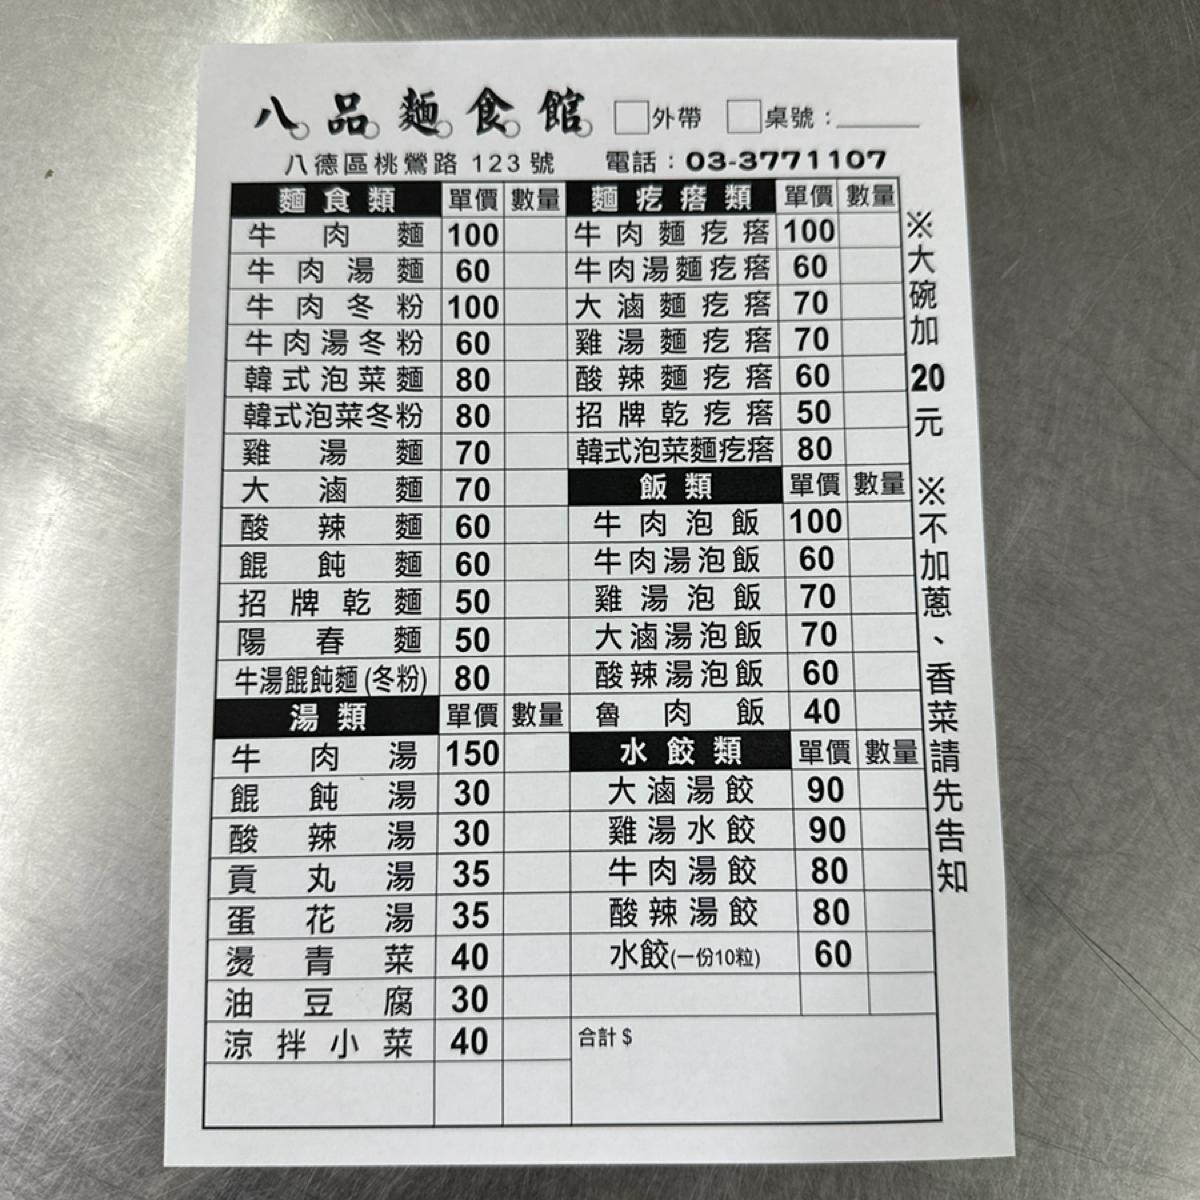 八品麵食館 外帶 桌號：
八德區桃鶯路 123 號 電話：03-3771107
麵食類 單價 數量
牛肉麵 100
牛肉湯麵 60
牛肉冬粉 100
牛肉湯冬粉 60
韓式泡菜麵 80
韓式泡菜冬粉 80
雞湯麵 70
大滷麵 70
酸辣麵 60
餛飩麵 60
招牌乾麵 50
陽春麵 50
牛湯餛飩麵(冬粉) 80
湯類 單價 數量
牛肉湯 150
餛飩湯 30
酸辣湯 30
貢丸湯 35
蛋花湯 35
燙青菜 40
油豆腐 30
涼拌小菜 40
麵疙瘩類 單價 數量
牛肉麵疙瘩 100
牛肉湯麵疙瘩 60
大滷麵疙瘩 70
雞湯麵疙瘩 70
酸辣麵疙瘩 60
招牌乾疙瘩 50
韓式泡菜麵疙瘩 80
飯類 單價 數量
牛肉泡飯 100
牛肉湯泡飯 60
雞湯泡飯 70
大滷湯泡飯 70
酸辣湯泡飯 60
魯肉飯 40
水餃類 單價 數量
大滷湯餃 90
雞湯水餃 90
牛肉湯餃 80
酸辣湯餃 80
水餃(一份10粒) 60
合計 $
※大碗加 20 元 ※不加蔥、香菜請先告知